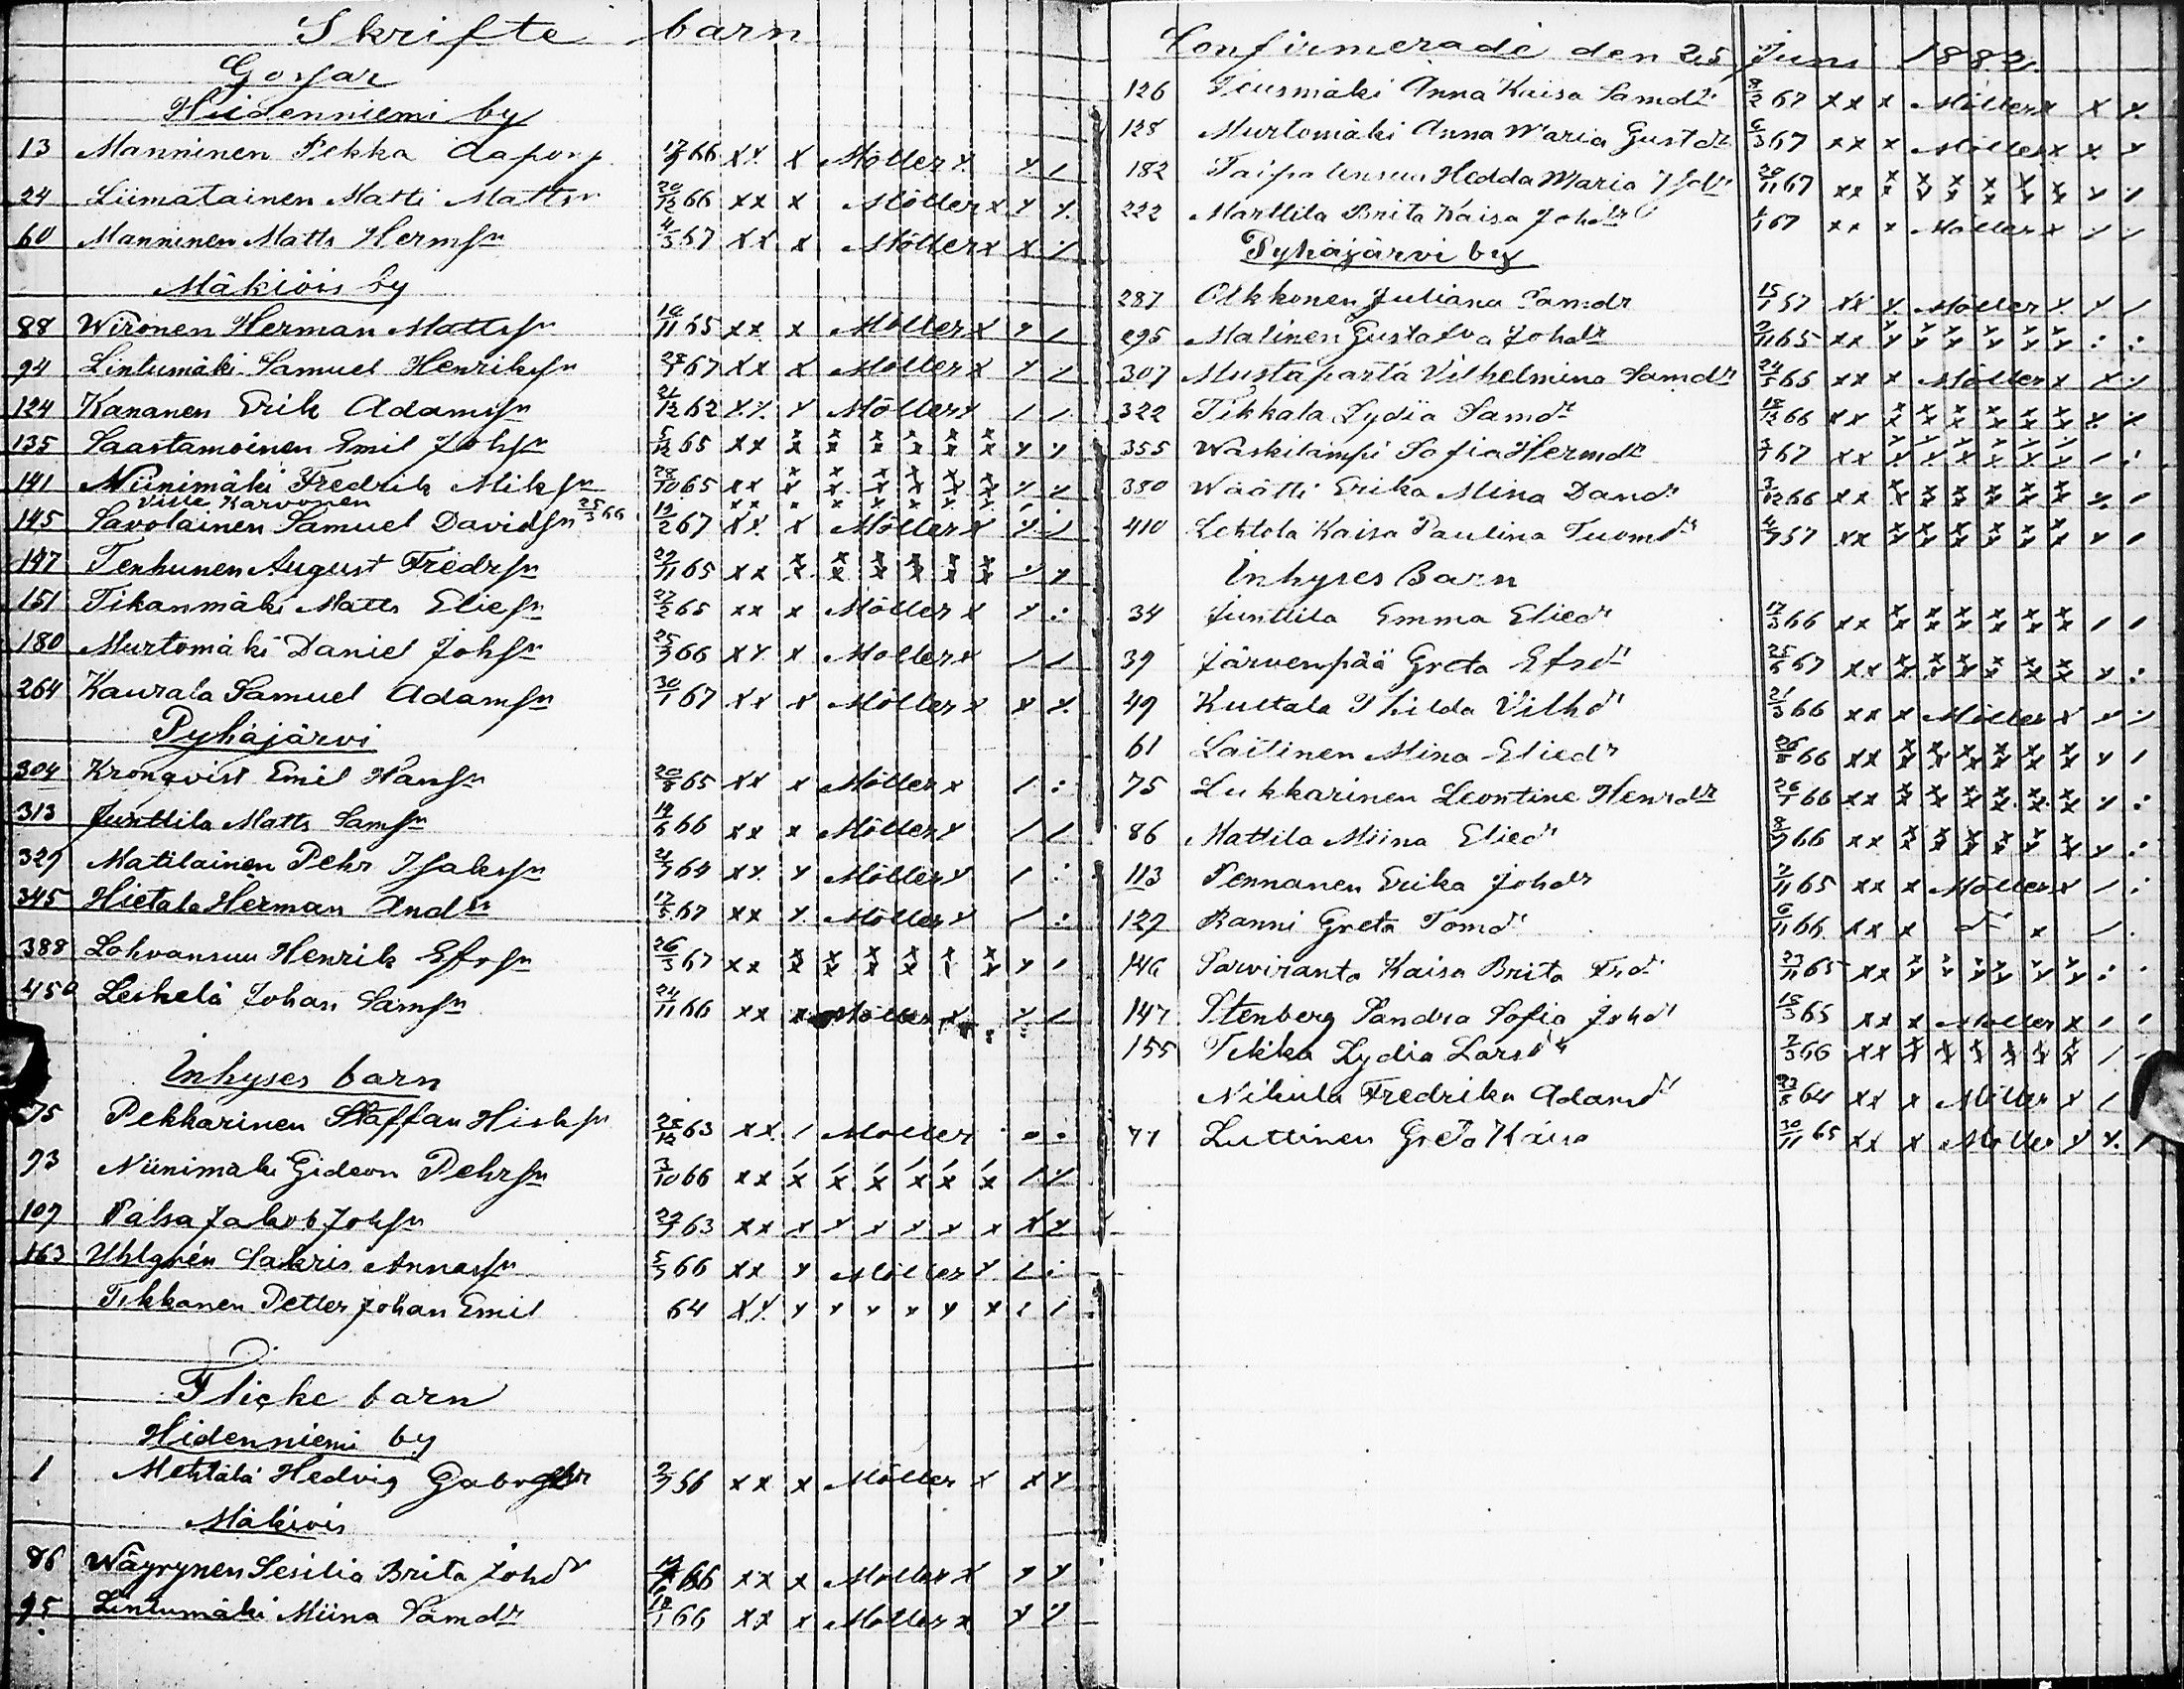 Skrifte barn
Gossar
Hiidenniemi by
13 Manninen Pekka Aaponp 17/9 66 xx x Möller x x /
24 Liimatainen Matti Mattsn 20/12 66 xx x Möller x x x
60 Manninen Matts Hermsn 4/3 67 xx x Möller x x ·/.
Mäkiöis by
88 Wironen Herman Mattssn 10/11 65 xx x Möller x x /
94 Lintumäki Samuel Henrikssn 67 xx x Möller x x /
124 Kananen Erik Adamssn 21/12 62 xx x Möller x / /
135 Saastamoinen Emil Johsn 5/12 65 xx x x x x x x x x
141 Niinimäki Fredrik Miksn 28/10 65 xx x x x x x x x x
Ville Karvonen 25/3 66 xx x x x x x x
145 Savolainen Samuel Davidsn 19/2 67 xx x Möller x x /
147 Tenhunen August Fredrsn 29/11 65 xx x x x x x x / x
151 Tikanmäki Matts Eliesn 27/2 65 xx x Möller x x :
180 Murtomäki Daniel Johsn 25/9 66 xx x Möller x / /
264 Kaurala Samuel Adamsn 30/1 67 xx x Möller x x x
Pyhäjärvi
304 Kronqvist Emil Hanssn 20/8 65 xx x Möller x / :
313 Junttila Matts Samsn 66 xx x Möller x / /
329 Matilainen Pehr Isakssn 64 xx x Möller x / :
345 Hietala Herman Andsn 17/5 67 xx x Möller x / :
388 Lohvansuu Henrik Efrsn 26/3 67 xx x x x x x x x /
450 Leskelä Johan Samsn 24/11 66 xx x Möller x x /
Inhyses barn
75 Pekkarinen Staffan Hisksn 28/12 63 xx / Möller
93 Niinimäki Gideon Pehrsn 3/10 66 xx x x x x x x / ·/.
107 Palsa Jakob Johsn 63 xx x x x x x x x x
163 Uhlgrén Sakris Annassn 66 xx x Möller x / :
Tikkanen Petter Johan Emil 64 xx x x x x x x / /
Flicke barn
Hidenniemi by
1 Mehtälä Hedvig 56 xx x Möller x x x
Mäkiöis
86 Wäyrynen Sesilia Brita Johdr 66 xx x Möller x x x
95 Lintumäki Miina Samdr 18/1 66 xx x Möller x x ·/.
Confirmerade den 25 Juni 1882.
126 Anna Kaisa Samdr 8/2 67 xx x Möller x x x
128 Murtomäki Anna Maria Gustdr 6/3 67 xx x Möller x x x
182 Taipalensuu Hedda Maria 20/11 67 xx x x x x x x x ·/.
222 Marttila Brita Kaisa Johdr 67 xx x Möller x ·/. ·/.
Pyhäjärvi by
287 Olkkonen Juliana Samdr 15/1 57 xx x Möller x x /
295 Malinen Gustafva Johdr 65 xx x x x x x x : :
307 Mustaparta Vilhelmina Samdr 24/5 65 xx x Möller x x ·/.
322 Tikkala Lydia Samdr 18/12 66 xx x x x x x x x ·/.
355 Waskilampi Sofia Hermdr 67 xx x x x x x x / :
380 Wäätti Erika Mina Dandr 3/12 66 xx x x x x x x x /
410 Lehtola Kaisa Paulina Tuomdr 57 xx x x x x x x x /
Inhyses Barn
34 Junttila Emma Eliedr 17/3 66 xx x x x x x x / /
39 Järvenpää Greta Efrdr 25/6 67 xx x x x x x x x :
49 Kultala Thilda Vilhdr 21/3 66 xx x Möller x x ·/.
61 Laitinen Mina Eliedr 26/8 66 xx x x x x x x x /
75 Lukkarinen Leontine Henrdr 26/1 66 xx x x x x x x x :
86 Mattila Miina Eliedr 8/9 66 xx x x x x x x x :
113 Pennanen Erika Johdr 65 xx x Möller x / :
127 Ranni Greta Tomdr 6/11 66 xx x x /
146 Sarviranta Kaisa Brita Frdr 23/11 65 xx x x x x x x : ·
147 Stenberg Sandra Sofia Johdr 18/3 65 xx x Möller x / /
155 Tikka Lydia Larsdr 7/3 66 xx x x x x x x /
Nikula Fredrika Adamdr 64 xx x Möller x /
77 Luttinen Greta Kaisa 30/11 65 xx x Möller x x /